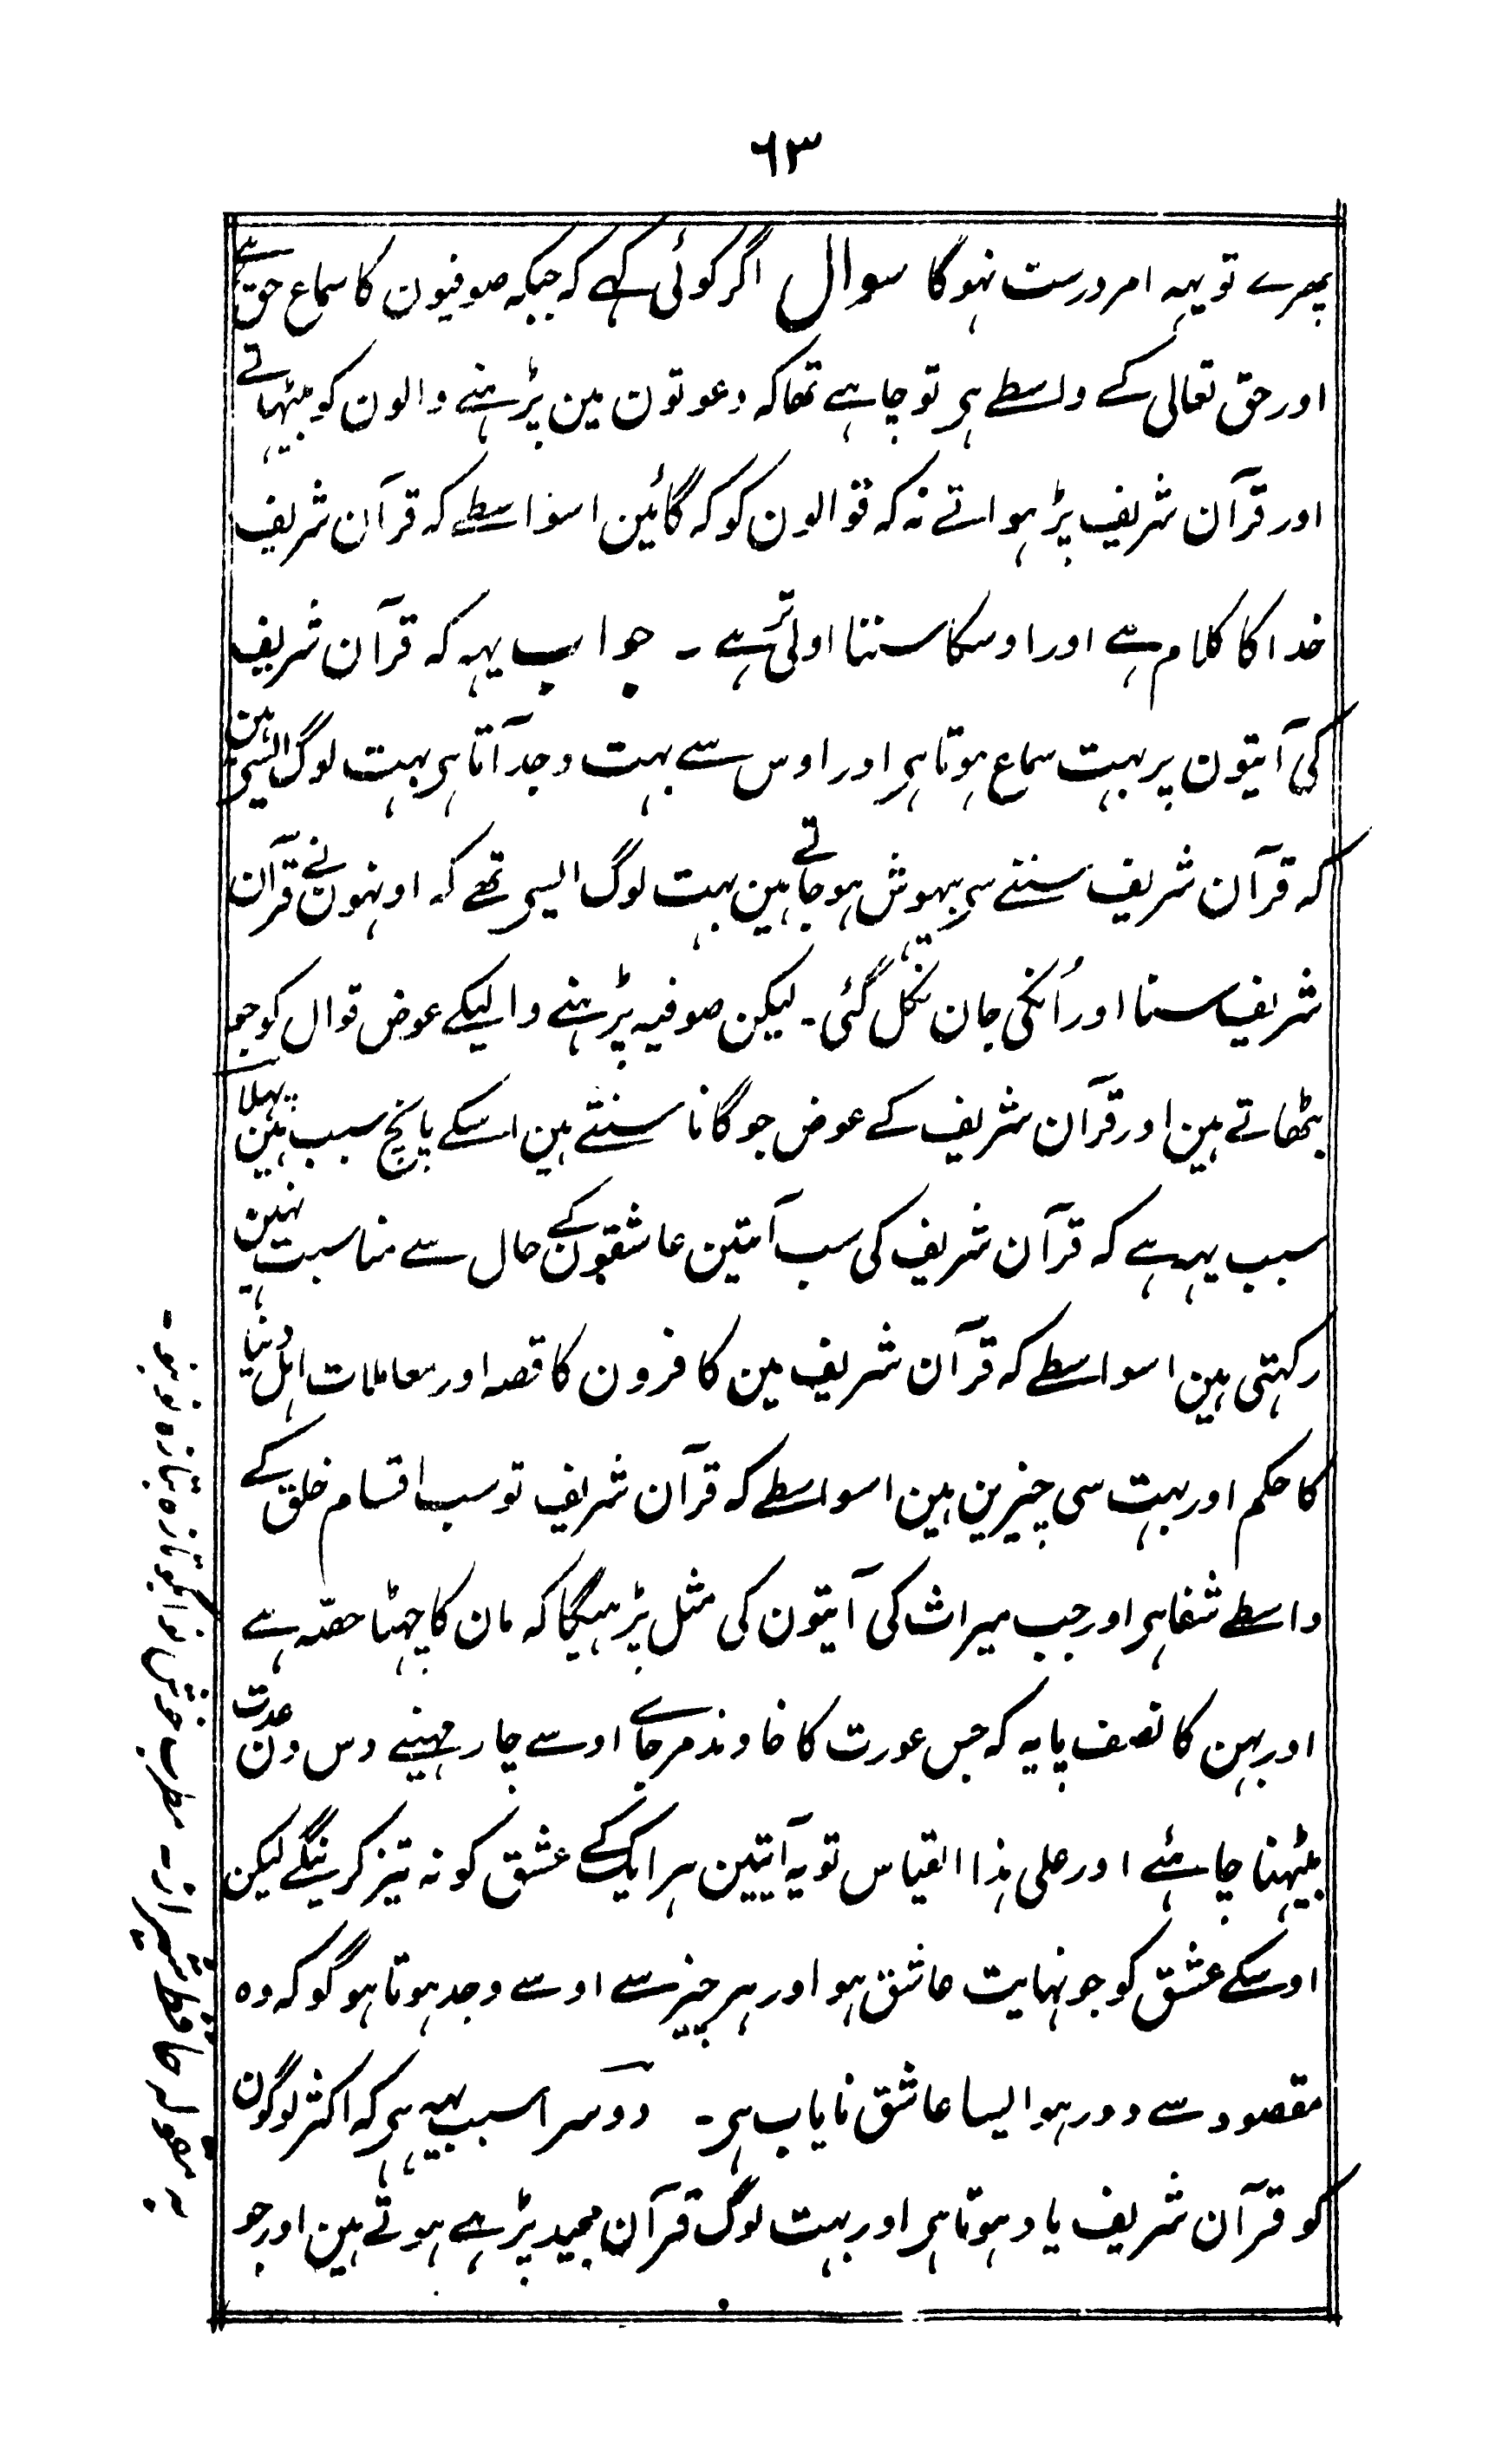 ٦٣
پھرے تو یہہ امر درست نہوگا سوال اگر کوئی کہے کہ جبکہ صوفیون کا سماع حق ہے
اور حق تعالی کے واسطے ہی تو چاہے تھا کہ دعوتون مین پڑہنے والون کو بیٹہاتے
اور قرآن شریف پڑہواتے نہ کہ قوالون کو کہ گائین اسواسطے کہ قرآن شریف
خدا کا کلام ہے اور اوسکا سننا اولی تر ہے ۔ جواب یہہ کہ قرآن شریف
کی آیتون پر بہت سماع ہوتا ہی اور اوس سے بہت وجد آتا ہی بہت لوگ ایسی ہین
کہ قرآن شریف سنتے ہی بیہوش ہو جاتے ہین بہت لوگ ایسی تھے کہ اونہون نے قرآن
شریف سنا اور اُنکی جان نکل گئی ۔ لیکن صوفیہ پڑہنے والیکے عوض قوال کو جو
بٹھاتے ہین اور قرآن شریف کے عوض جو گانا سنتے ہین اسکے پانچ سبب ہین پہلا
سبب یہہ ہے کہ قرآن شریف کی سب آیتین عاشقون کے حال سے مناسبت نہین
رکہتی ہین اسواسطے کہ قرآن شریف مین کافرون کا قصہ اور معاملات اہل دنیا
کا حکم اور بہت سی چیزین ہین اسواسطے کہ قرآن شریف تو سب اقسام خلق کے
واسطے شفا ہی اور جب میراث کی آیتون کی مثل پڑہیگا کہ مان کا چہٹا حصّہ ہے
اور بہن کا نصف یا یہ کہ جس عورت کا خاوند مر جاے اوسے چار مہینے دس دن عدت
بیٹہنا چاہئے اور علی ہذا القیاس تو یہ آیتین ہر ایک کے عشق کو نہ تیز کرینگے لیکن
اوسکے عشق کو جو نہایت عاشق ہو اور ہر چیز سے اوسے وجد ہوتا ہو گو کہ وہ
مقصود سے دور ہو ایسا عاشق نایاب ہی ۔ دوسرا سبب یہہ ہی کہ اکثر لوگون
کو قرآن شریف یاد ہوتا ہی اور بہت لوگ قرآن مجید پڑہے ہوتے ہین اور جو
بقول حافظ شیراز ۔ مطرب خوش نوا بگو تازہ بتازہ نو بنو ۔